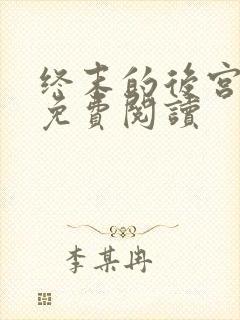 终末的後宫
免費閱讀
李某冉